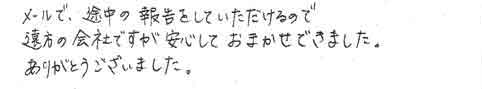 メールで、途中の報告をしていただけるので
遠方の会社ですが安心しておまかせできました。
ありがとうございました。